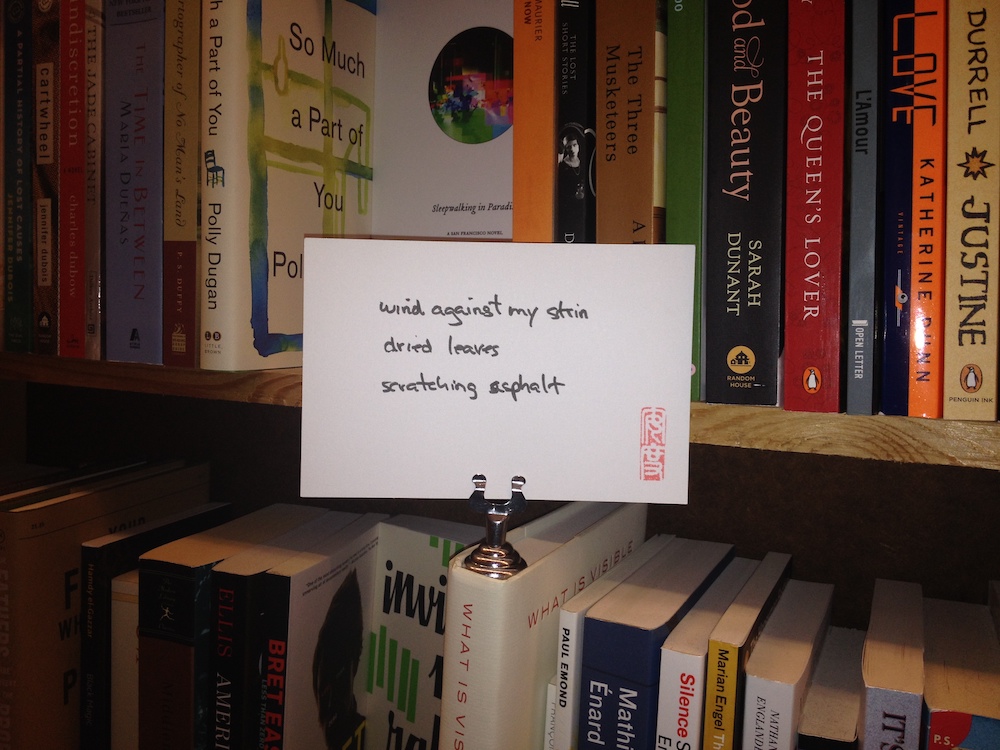 A PARTIAL HISTORY OF LOST CAUSES
JENNIFER DUBOIS
cartwheel
jennifer dubois
indiscretion
charles dubow
THE JADE CABINET
THE TIME IN BETWEEN
MARIA DUEÑAS
Cartographer of No Man's Land
P. S. DUFFY
h a Part of You
Polly Dugan
LITTLE BROWN
So Much
a Part of
You
Pol
Sleepwalking in Paradi
A SAN FRANCISCO NOVEL
MAURIER
NOW
THE LOST SHORT STORIES
D
The Three Musketeers
od and Beauty
SARAH DUNANT
RANDOM HOUSE
THE QUEEN'S LOVER
L'Amour
OPEN LETTER
LOVE
VINTAGE
KATHERINE DUNN
DURRELL
JUSTINE
PENGUIN INK
wind against my skin
dried leaves
scratching asphalt
YOUR
ELLIS
AMERI
BRET EAS
LESS THAN
invi
WHAT IS VIS
WHAT IS VISIBLE
PAUL EMOND
Mathi
Énard
Silence
Marian Engel
NATHAN ENGLANDE
P.S.